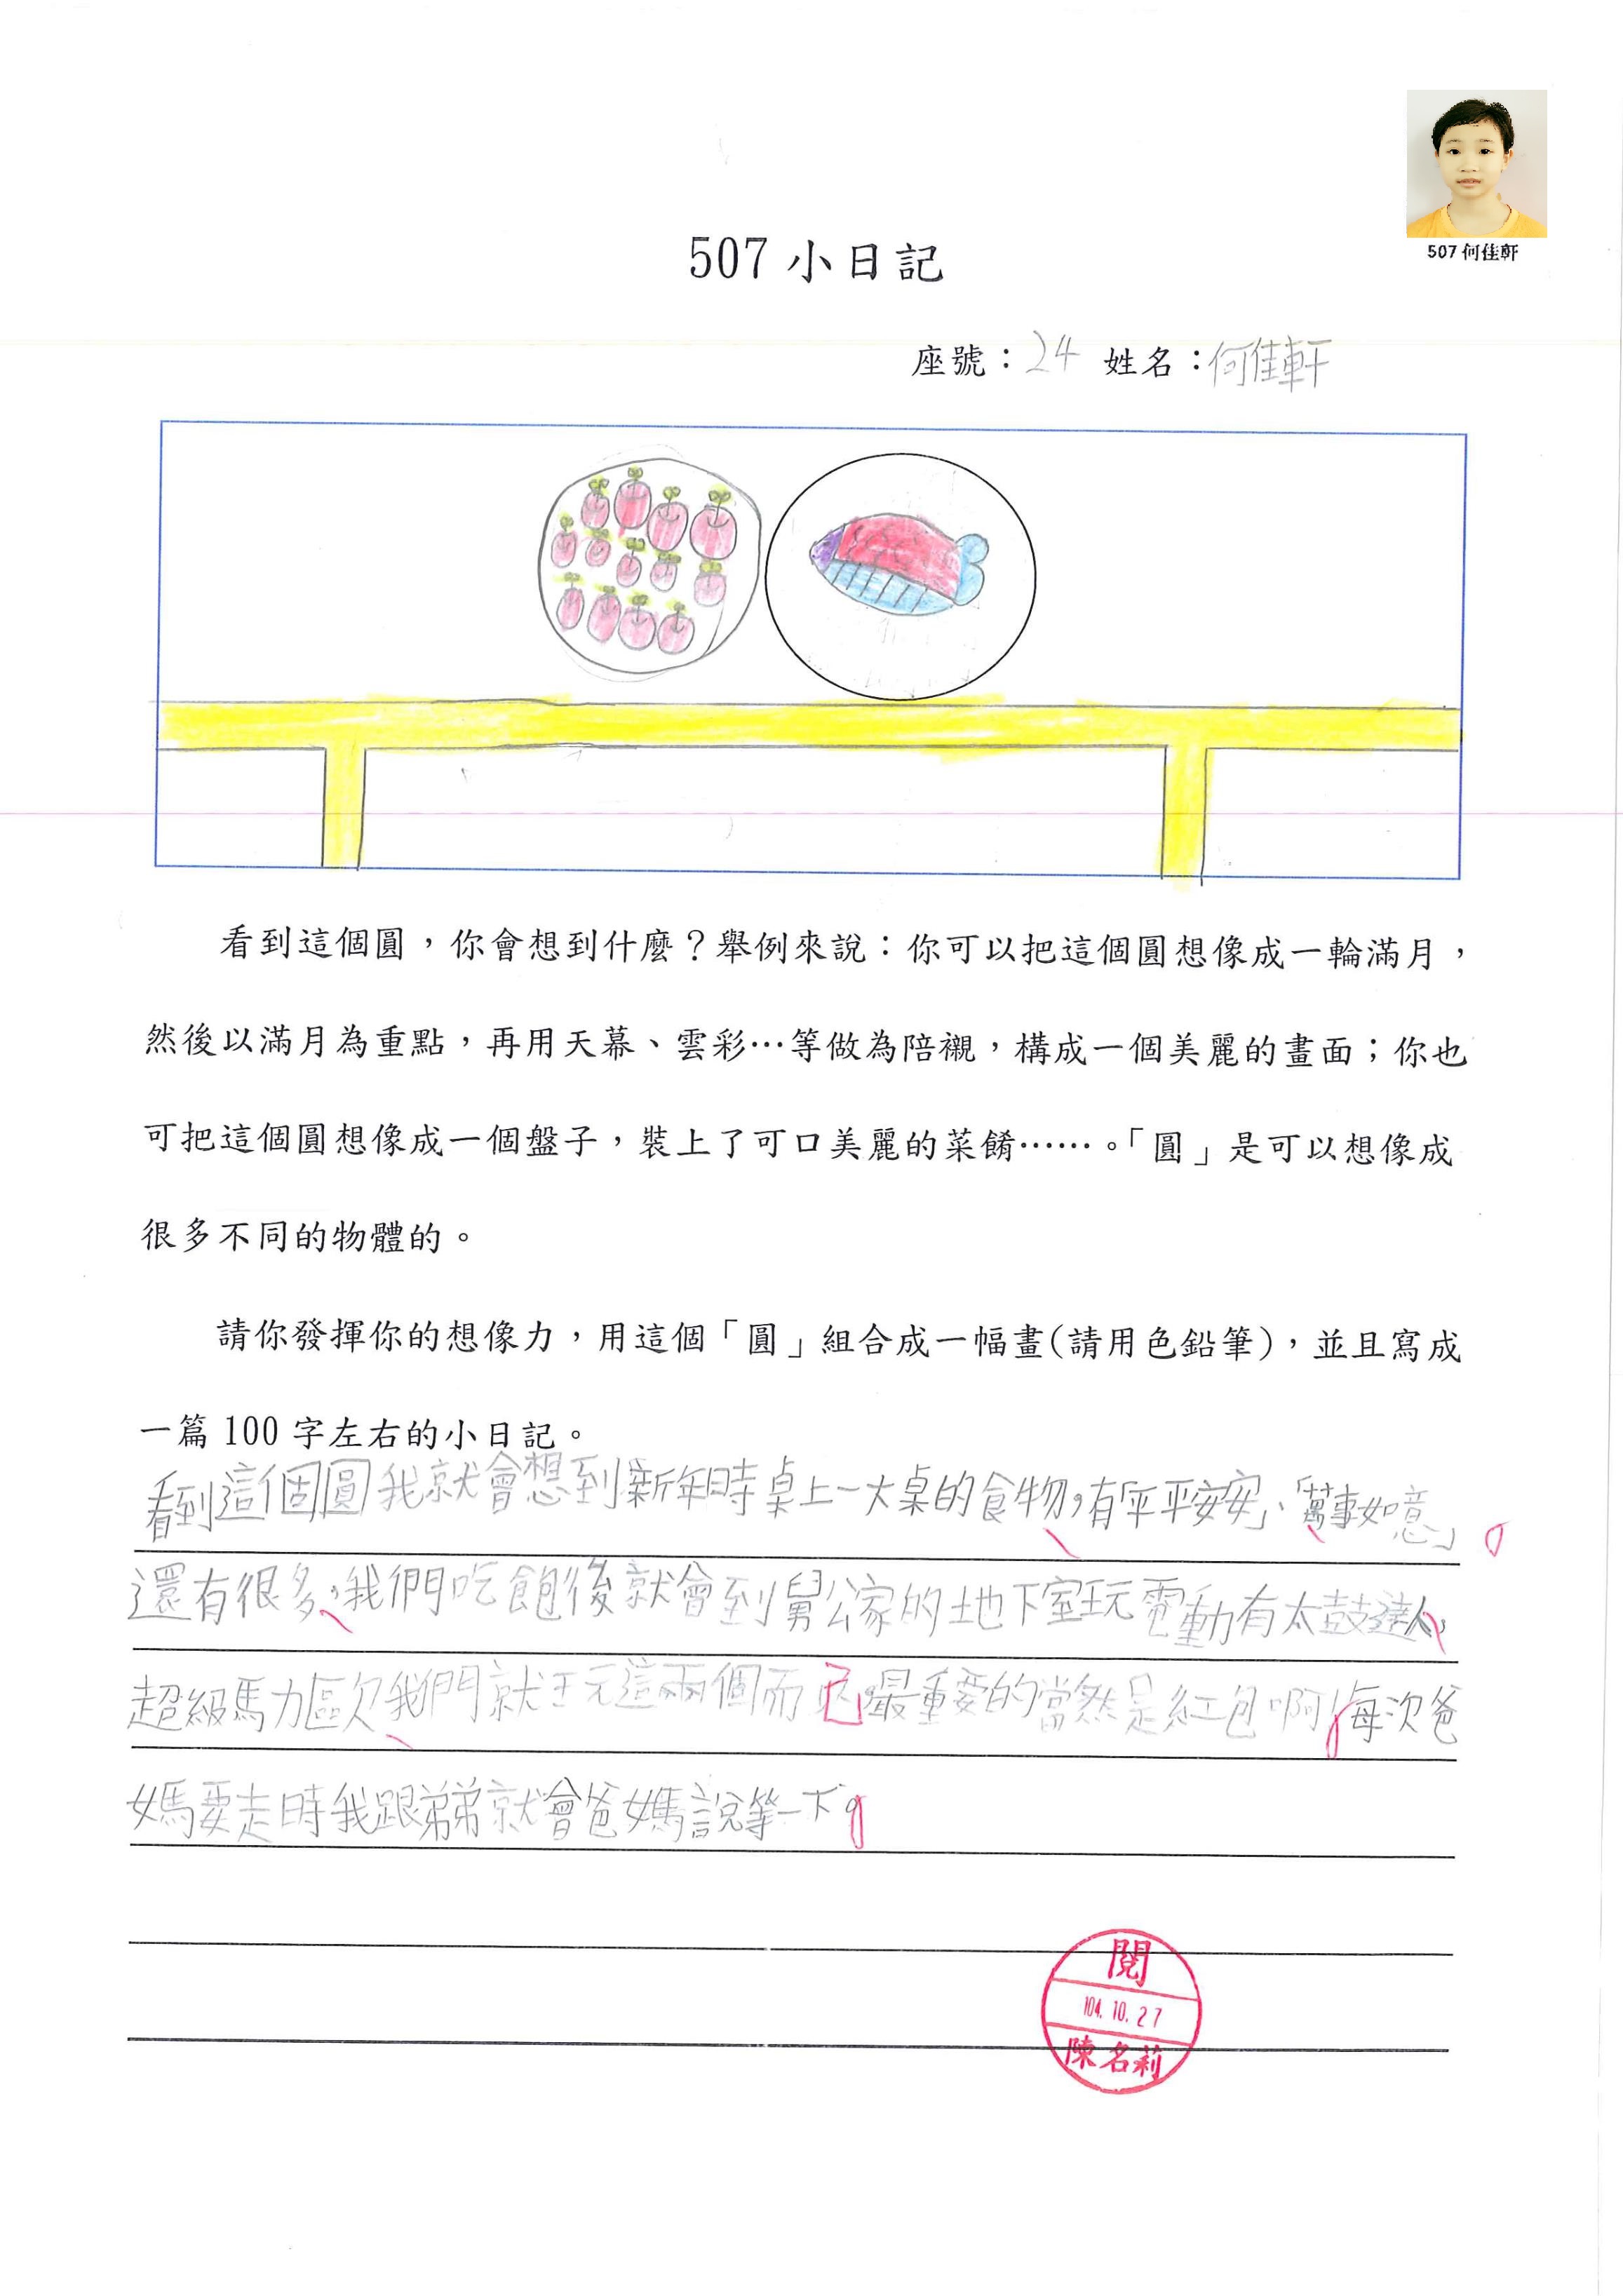 507 何佳軒
507 小日記
座號：24 姓名：何佳軒
看到這個圓，你會想到什麼？舉例來說：你可以把這個圓想像成一輪滿月，
然後以滿月為重點，再用天幕、雲彩…等做為陪襯，構成一個美麗的畫面；你也
可把這個圓想像成一個盤子，裝上了可口美麗的菜餚……。「圓」是可以想像成
很多不同的物體的。
請你發揮你的想像力，用這個「圓」組合成一幅畫(請用色鉛筆)，並且寫成
一篇 100 字左右的小日記。
看到這個圓我就會想到新年時桌上一大桌的食物，有「平平安安」、「萬事如意」。
還有很多，我們吃飽後就會到舅公家的地下室玩電動有太鼓達人、
超級馬力歐我們就玩這兩個而已，最重要的當然是紅包啊！每次爸
媽要走時我跟弟弟就會爸媽說等一下。
閱
104.10.27
陳名莉